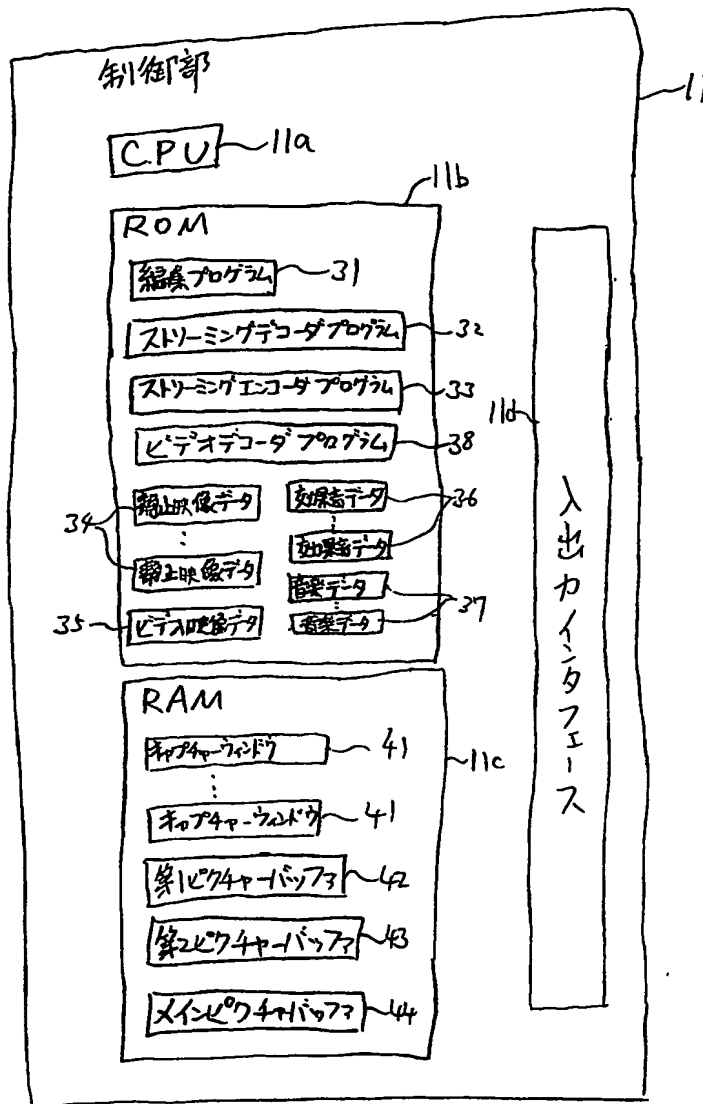 制御部
11
CPU 11a
11b
ROM
編集プログラム 31
ストリーミングデコーダプログラム 32
ストリーミングエンコーダプログラム 33
ビデオデコーダプログラム 38
34 静止映像データ
静止映像データ
35 ビデオ映像データ
効果音データ 36
効果音データ
音楽データ 37
音楽データ
RAM
11c
キャプチャーウィンドウ 41
キャプチャーウィンドウ 41
第1ピクチャーバッファ 42
第2ピクチャーバッファ 43
メインピクチャバッファ 44
11d
入出力インタフェース